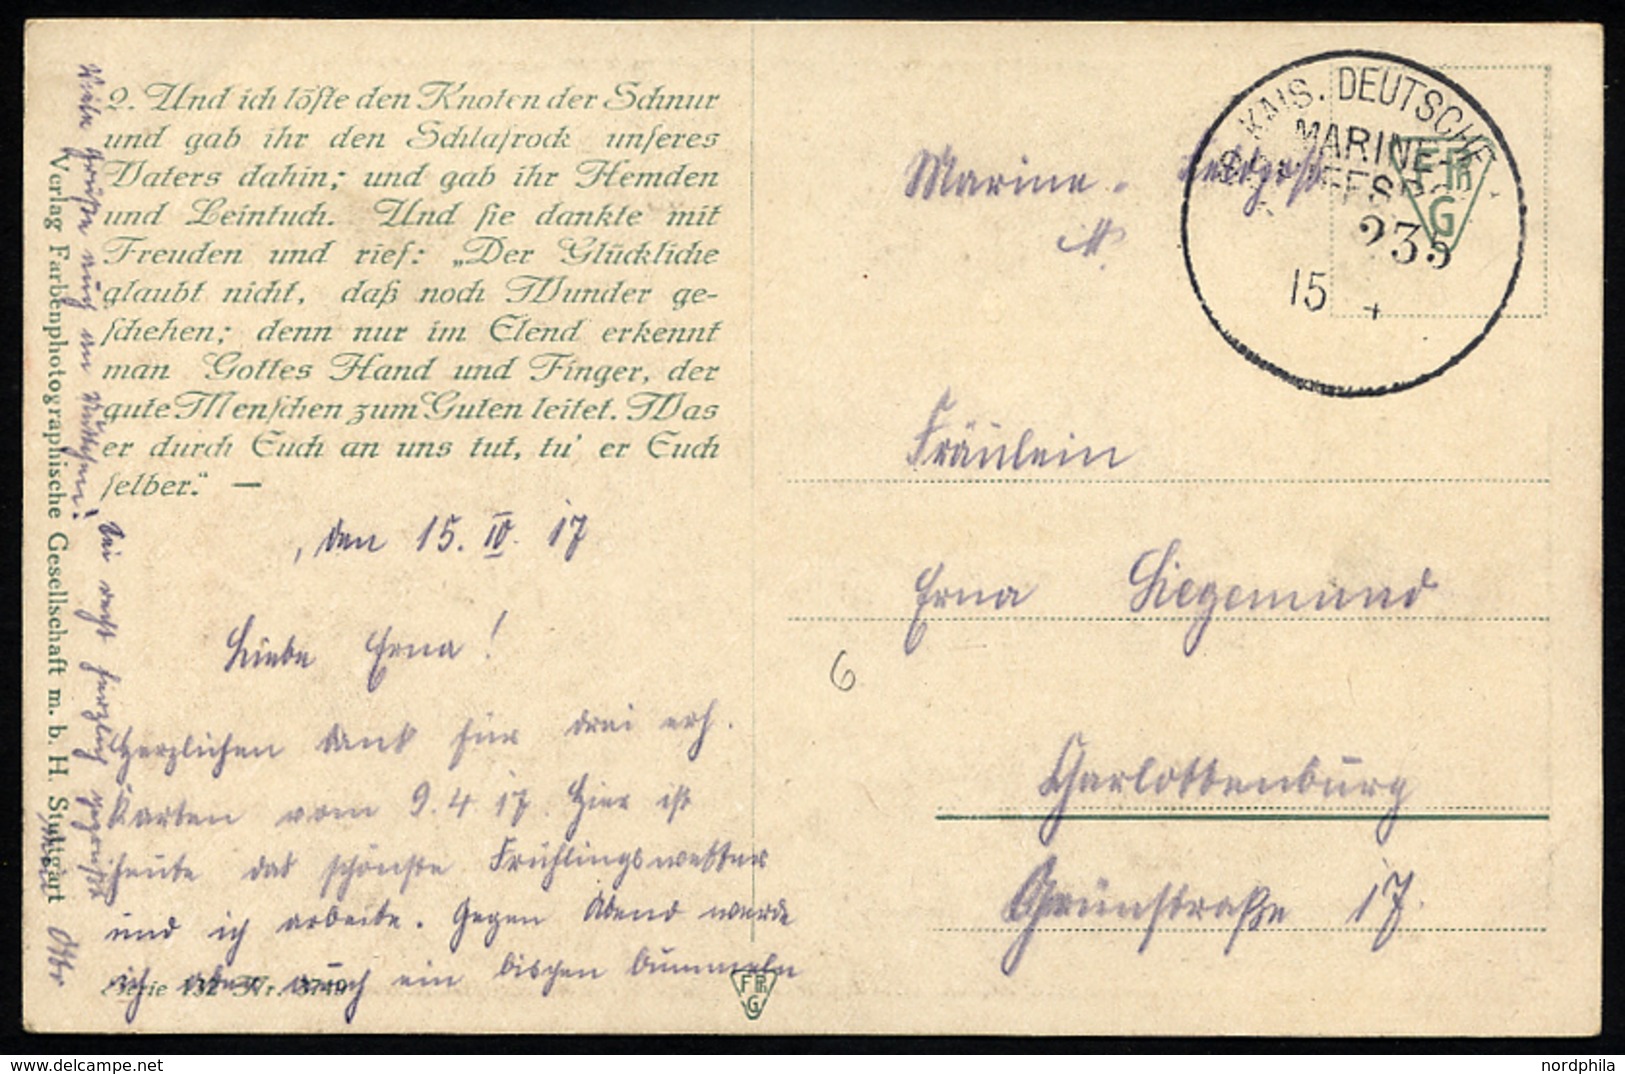 2. Und ich löſte den Knoten der Schnur
und gab ihr den Schlafrock unſeres
Vaters dahin; und gab ihr Hemden
und Leintuch. Und ſie dankte mit
Freuden und rief: „Der Glückliche
glaubt nicht, daß noch Wunder ge-
ſchehen; denn nur im Elend erkennt
man Gottes Hand und Finger, der
gute Menſchen zum Guten leitet. Was
er durch Euch an uns tut, tu' er Euch
ſelber.“ —
, den 15. IV. 17
Liebe Erna!
Herzlichen Dank für drei erh.
Karten vom 9.4.17. Hier ist
heute das schönste Frühlingswetter
und ich arbeite. Gegen Abend werde
ich aber auch ein bischen bummeln
Serie 132 Nr. 3749
F Ph G
Viele Grüße auch an
Sei recht herzlich gegrüßt
Otto
Verlag Farbenphotographische Gesellschaft m. b. H. Stuttgart
Marine-Feldpost
KAIS. DEUTSCHE
MARINE-
235
15 4
F Ph G
Fräulein
Erna Siegemund
6
Charlottenburg
Grünstraße 17.
nordphila